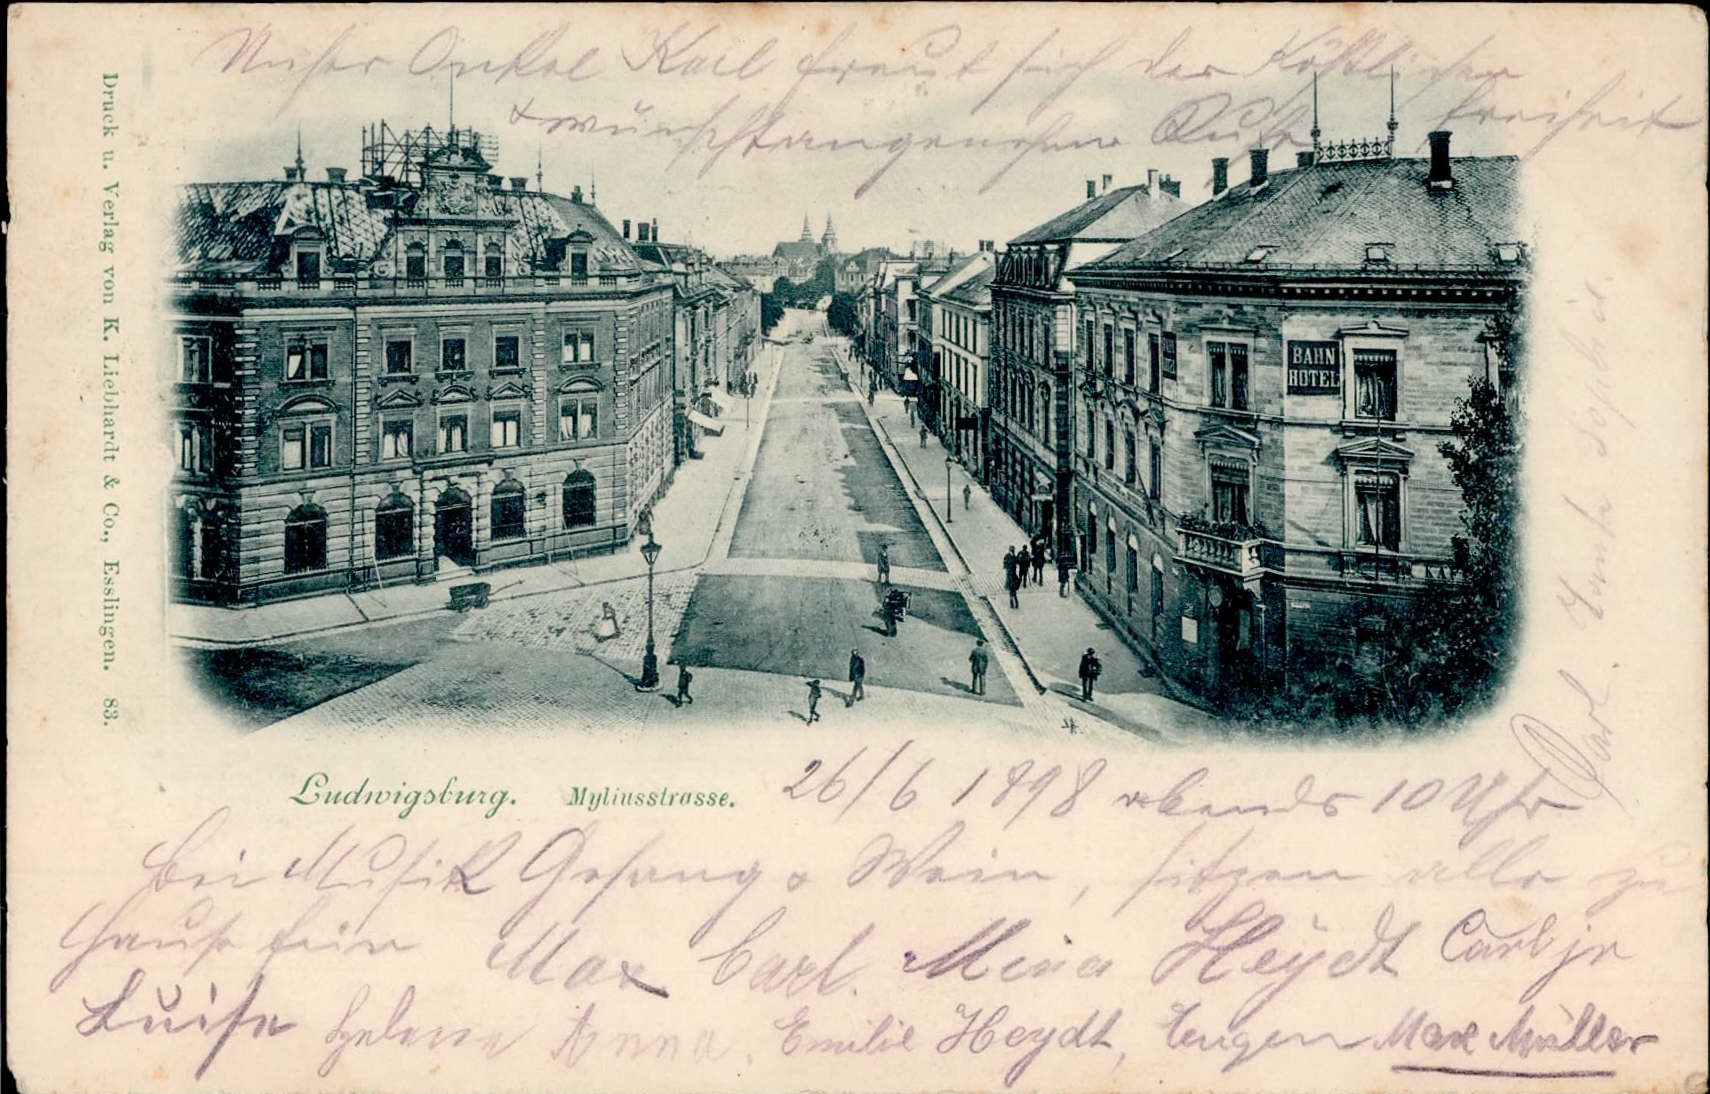 Unser Onkel Karl freut sich der Köstlichen
Freiheit
& wünscht angenehme Ruhe
Druck u. Verlag von K. Liebhardt & Co., Esslingen. 83.
BAHN
HOTEL
Tante Sophie.
Carl
Ludwigsburg. Myliusstrasse.
26/6 1898 abends 10 Uhr
Bei Musik Gesang & Wein, sitzen alle zu
Hause fein Max Carl. Mina Heydt Carl jr
Luise Helene Anna. Emilie Heydt, Eugen Max Müller